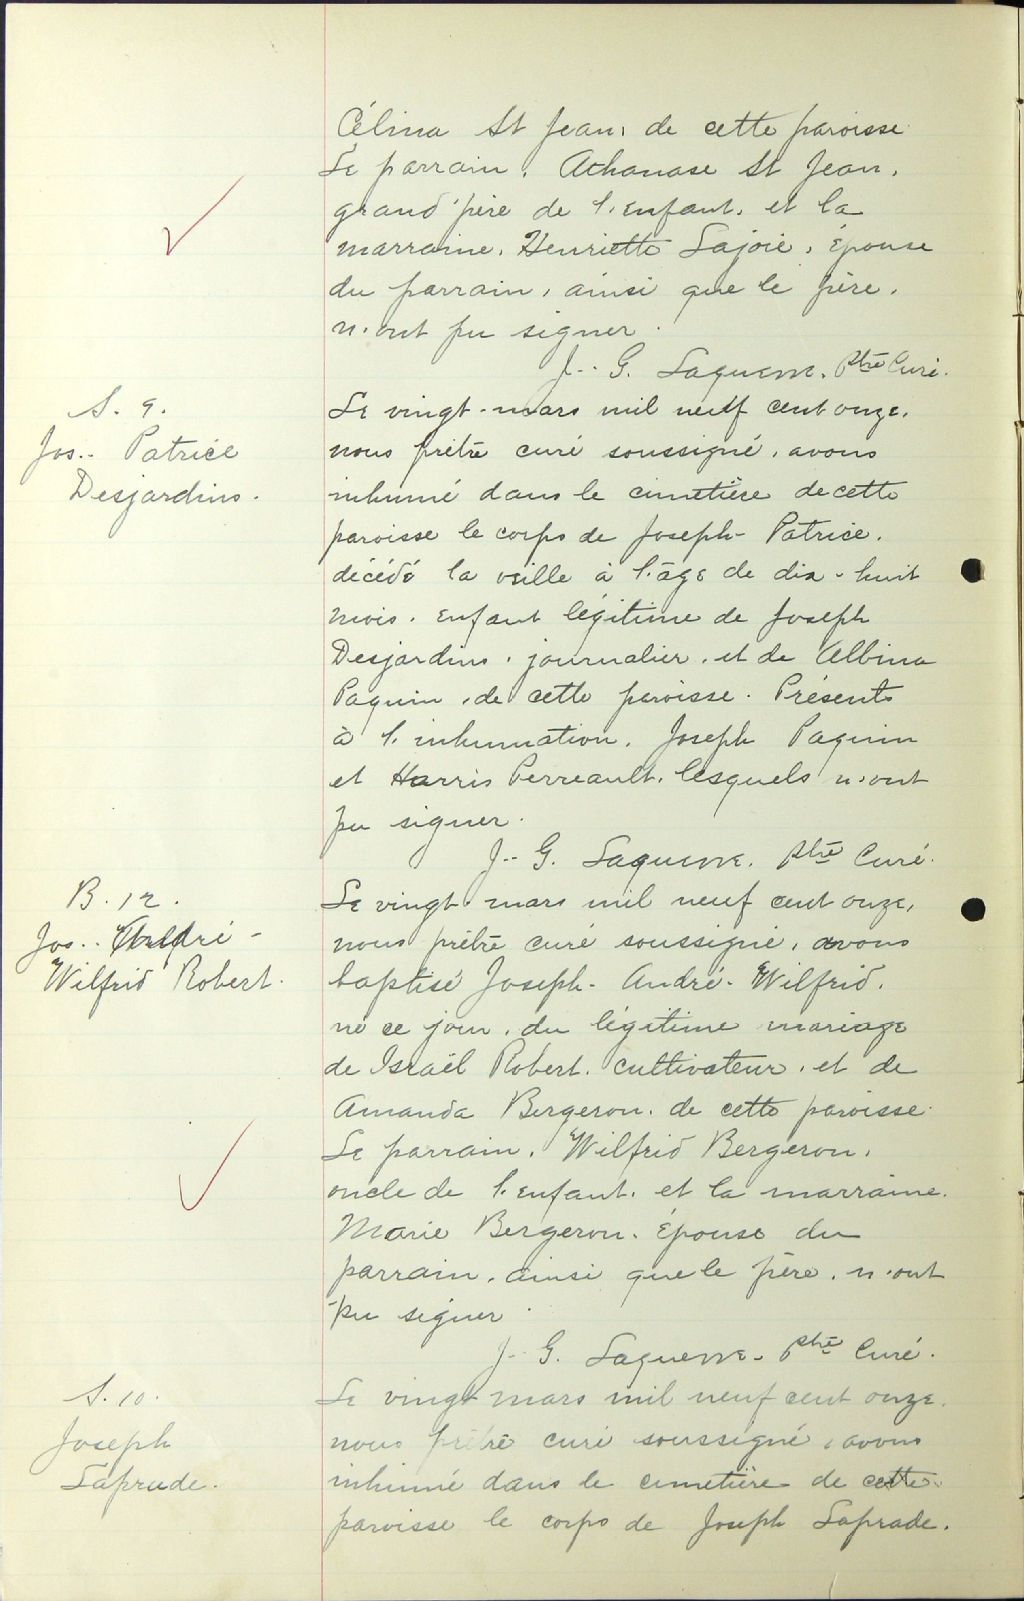 Célina St Jean, de cette paroisse
Le parrain, Athanase St Jean,
grand'père de l'enfant, et la
marraine, Henriette Lajoie, épouse
du parrain, ainsi que le père,
n'ont pu signer.
J.-G. Laquerre, Ptre Curé.
S. 9.
Jos.- Patrice
Desjardins.
Le vingt-mars mil neuf cent onze,
nous prêtre curé soussigné, avons
inhumé dans le cimetière de cette
paroisse le corps de Joseph-Patrice,
décédé la veille à l'âge de dix-huit
mois, enfant légitime de Joseph
Desjardins, journalier, et de Albina
Paquin, de cette paroisse. Présents
à l'inhumation, Joseph Paquin
et Harris Perreault, lesquels n'ont
pu signer.
J.-G. Laquerre, Ptre Curé.
B. 12.
Jos.- André-
Wilfrid Robert.
Le vingt mars mil neuf cent onze,
nous prêtre curé soussigné, avons
baptisé Joseph-André-Wilfrid,
né ce jour, du légitime mariage
de Israël Robert, cultivateur, et de
Amanda Bergeron, de cette paroisse.
Le parrain, Wilfrid Bergeron,
oncle de l'enfant, et la marraine,
Marie Bergeron, épouse du
parrain, ainsi que le père, n'ont
pu signer.
J.-G. Laquerre, Ptre Curé.
S. 10.
Joseph
Laprade.
Le vingt mars mil neuf cent onze,
nous prêtre curé soussigné, avons
inhumé dans le cimetière de cette
paroisse le corps de Joseph Laprade,